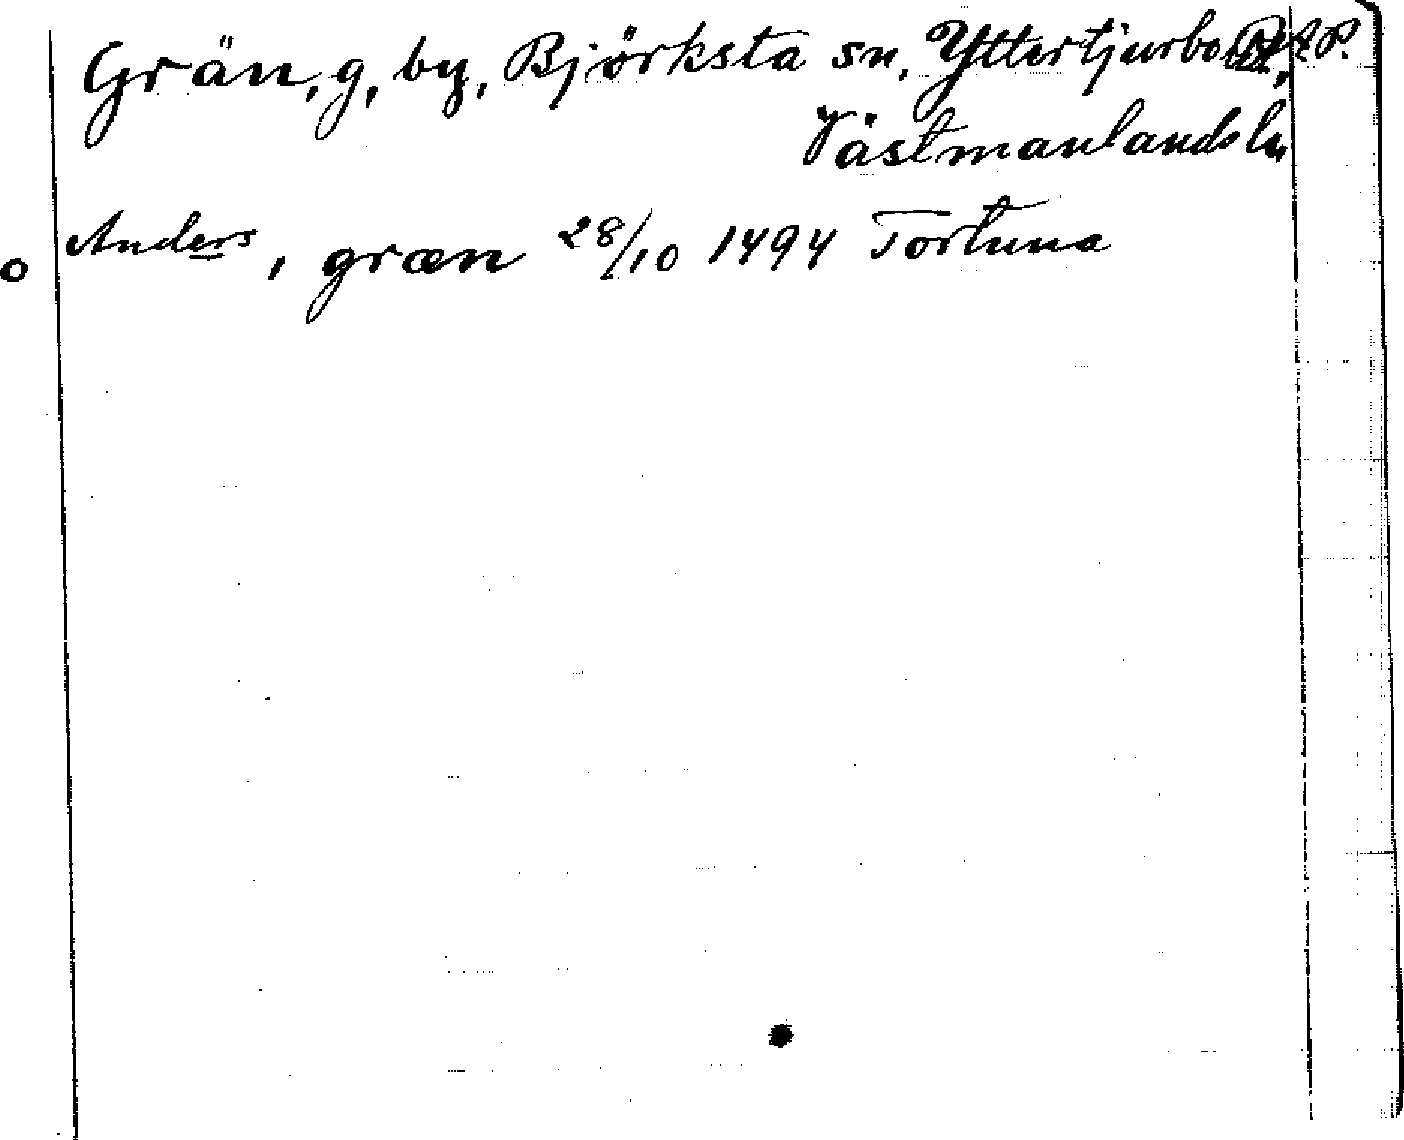 Grän, g, by, Björksta sn, Yttertjurbo
Västmanlands ln
o Anders, græn 28/10 1494 Tortuna